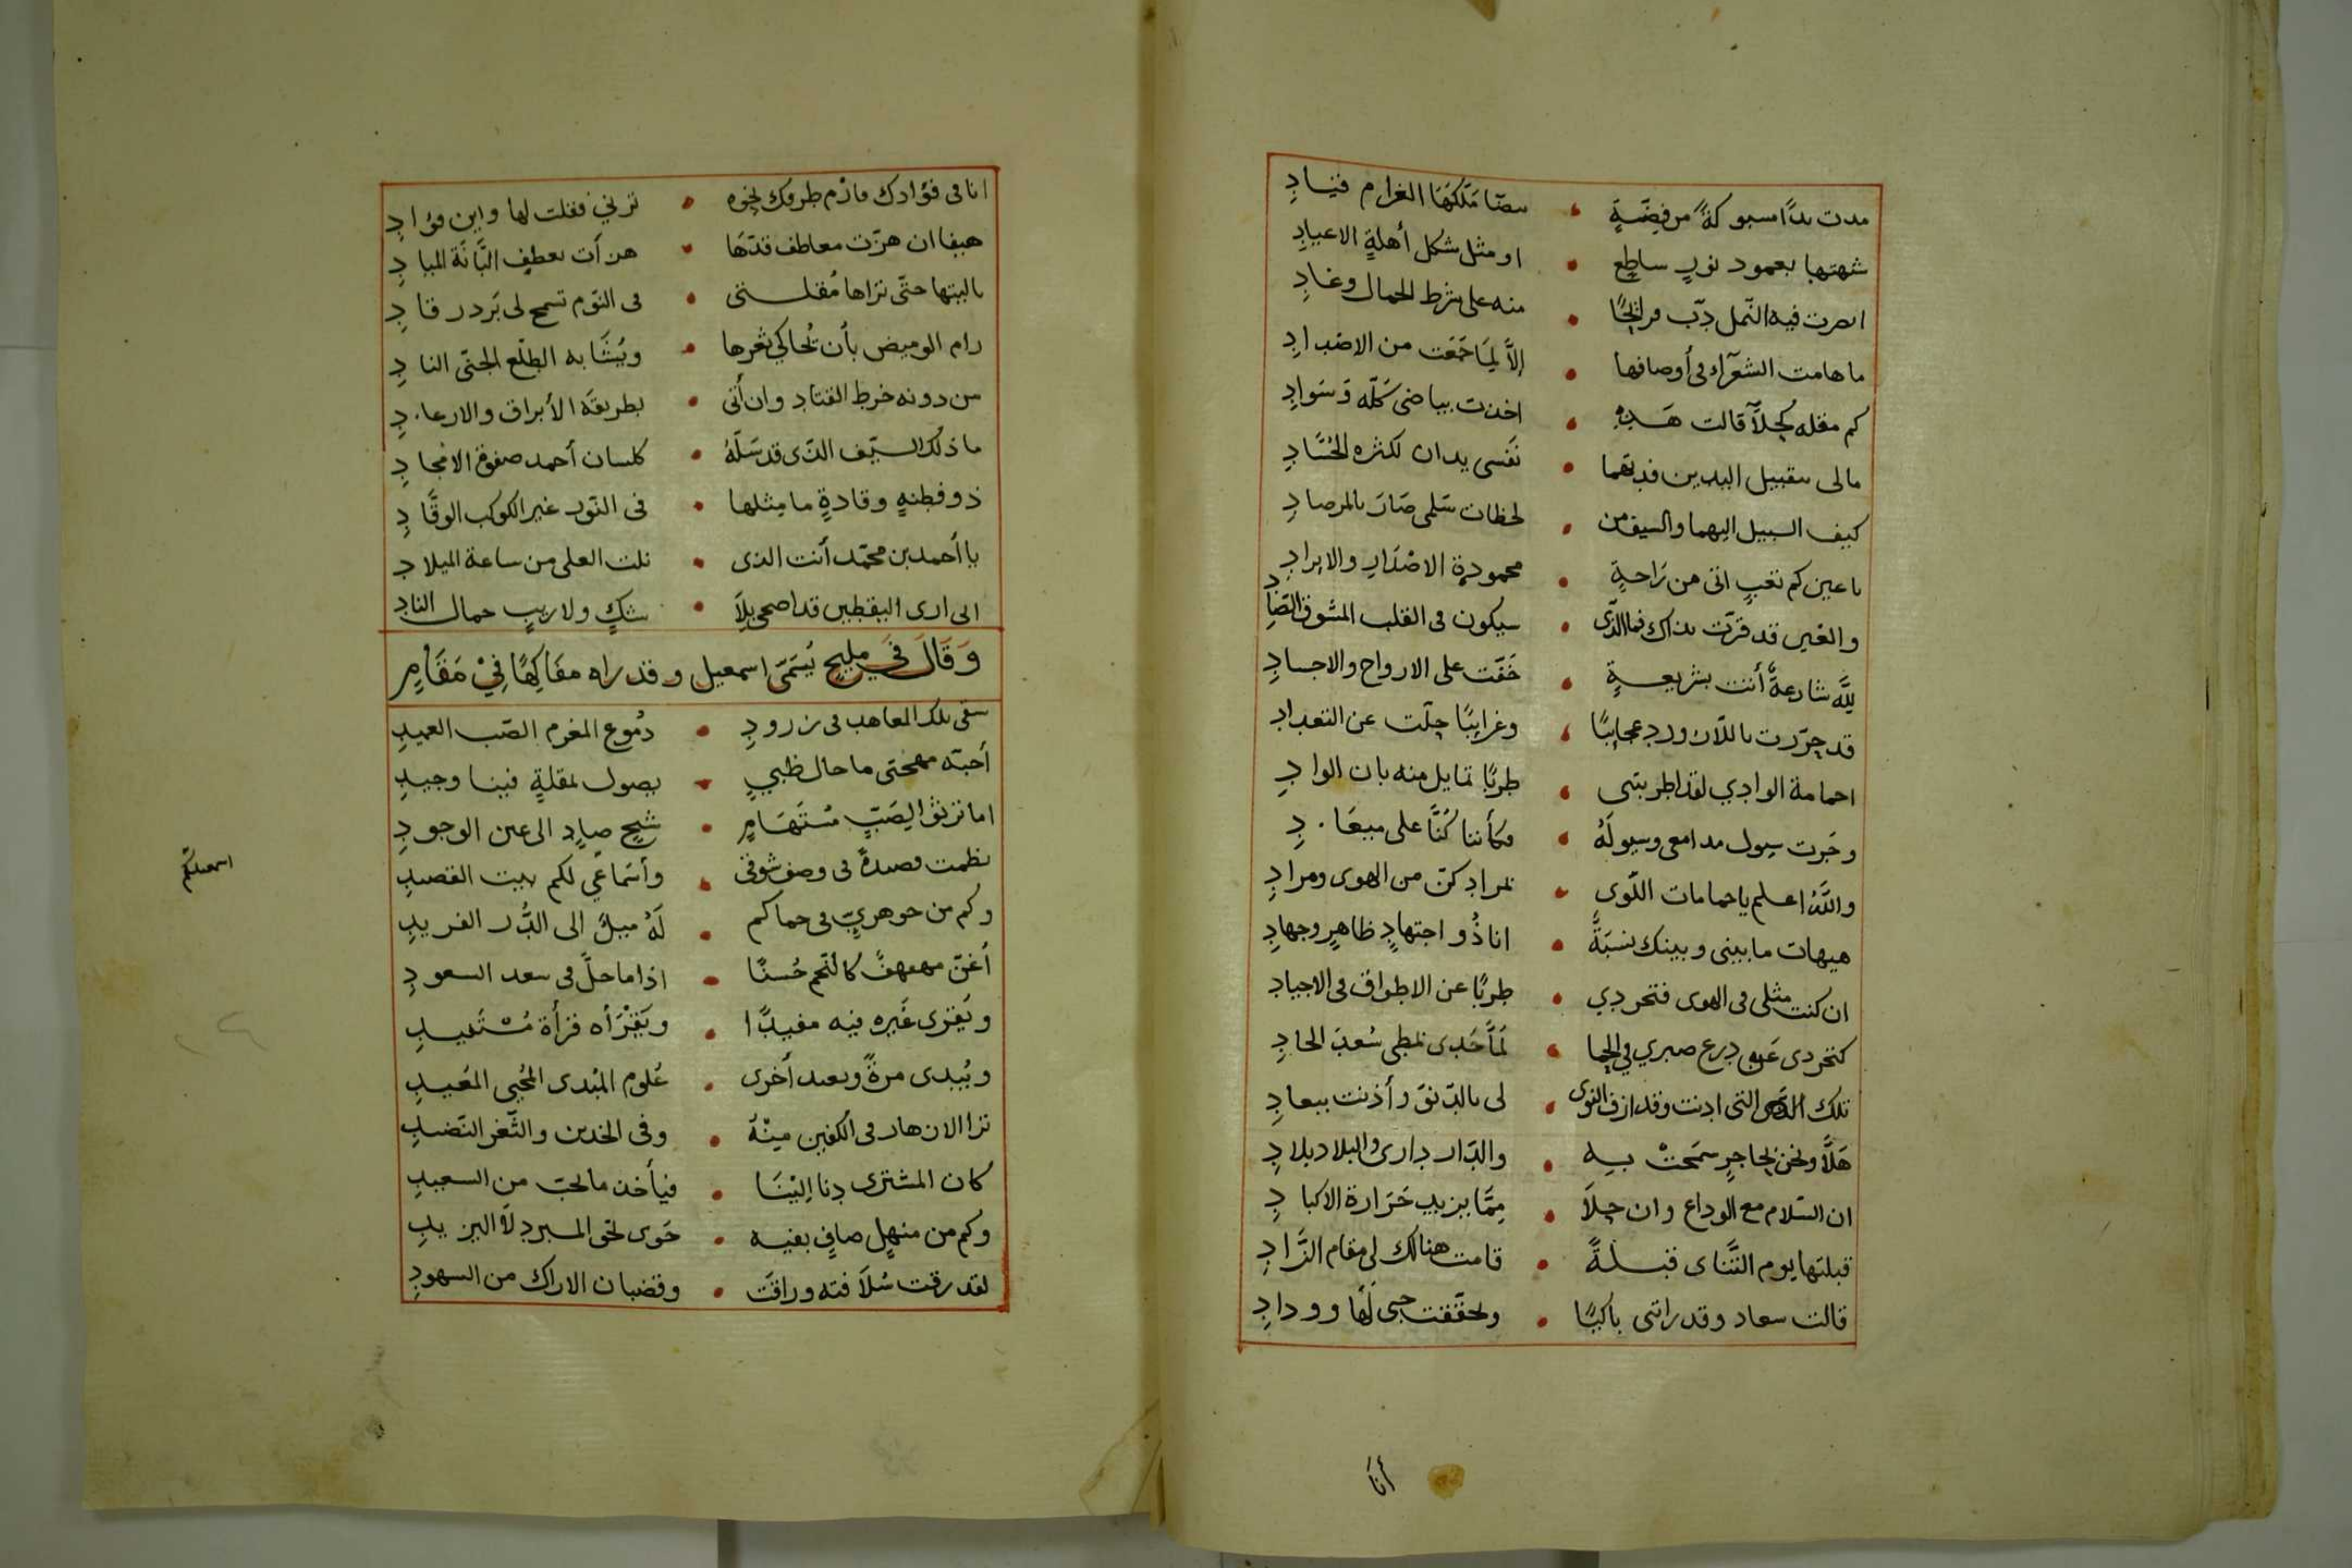 مدت يدًا مسبوكةً من فضّةٍ • بيضا مَلّكهَا الغرام قيادِ
شبهتها بعمود نورٍ ساطع • او مثل شكل أهلةِ الاعيادِ
ابصرت فيه النّمل دبّ • منه على شرط الجمال وغادِ
ما هامت الشعرآء في أوصافها • إلاَّ لِمَا جَمَعَت من الاضدادِ
كم مقله كحلآ قالت هَذِهِ • اخذت بياضى كلّه وَسَوادِ
مالى بتقبيل اليدين فديتهما • نفسى يدان لكثره الحُسَّادِ
كيف السبيل اليهما والسيف من • لحظات سَلمى صَارَ بالمرصادِ
يا عين كم تعبٍ اتى من رَاحةٍ • محمودة الاصْدَارِ والايرادِ
والعين قد قرّت بذاك فما الذّى • سيكون فى القلب المشوق الصَّادِ
للهِ شارعةٌ أتت بشريعةٍ • خَفّت على الارواح والاجسادِ
قد جرّرت باللآن ورد عجايبًا • وغرايبًا جلّت عن التعدادِ
احمامة الوادي لقد اطربتنى • طربًا تمايل منه بان الوادِ
وجَرت سيول مدامعى وسيولَهُ • وكأننا كُنَّا على ميعَادِ
واللَّهُ اعلم يا حمامات اللّوى • بمرادكنّ من الهوى ومرادِ
هيهات ما بينى وبينك نسبَةٌ • انا ذُو اجتهادٍ ظاهرٍ وجهادِ
ان كنت مثلى فى الهوى فتجردي • طربًا عن الاطواق فى الاجيادِ
كتجردى عَن درع صبري في الحِما • لمَّا حَدى بمطى سُعدَ الحادِ
تلك التى ادنت وقد ازف النوى • لى بالدّنوّ وأذنت ببعادِ
هَلَّا ونحن بحاجرٍ سمَحَتْ بِهِ • والدّار دارى والبلاد بلادِ
ان السّلام مع الوداع وان حلاَ • مِمَّا يزيد حَرَارة الاكبادِ
قبلتها يوم التَّنَاى قبلةً • قامت هنالك لى مقام الزَّادِ
قالت سعاد وقد راتنى باكيًا • وتحققت حبى لَهَا وودادِ
أنا
انا فى فؤادك فارْمِ طرفك نحوه • ترنِي فقلت لها واين فؤادِ
هيفا ان هزّت معاطف قدّهَا • هزأت بعطفِ البَّانَة الميادِ
ياليتها حتّى تراها مُقلتى • فى النّوم تسمح لى بَرد رقادِ
رام الوميض بأن تُحاكي ثغرها • ويُشَابه الطّلع الجنّى النادِ
من دونه خرط القتادِ وان أتى • بطريقَه الأبراق والارعادِ
ما ذلك السيّف الذّى قد سَلّهُ • كلسان أحمد صفوة الامجادِ
ذو فطنهٍ وقادةٍ ما مِثلها • فى النّور غير الكوكب الوقَّادِ
يا أحمد بن محمّد أنت الذى • نلت العلى من ساعة الميلادِ
انى ارى اليقطين قد اضحى بِلاَ • شكٍ ولا ريبٍ جمال النادِ
وَقَالَ فِي مليحٍ يُسَمَّى اسمعيل وقد راه مفَاكِهًا فِيْ مَقَامِ
سقى تلك المعاهد فى زرودِ • دُموع المغرم الصّب العميدِ
أحبّه مهجتى ما حال ظبيٍ • يصول بمقلةٍ فينا وجيدِ
اما ترثو الِصَبٍّ مُسْتَهَامٍ • شجٍ صادٍ الى عين الوجودِ
نظمت قصيدةً فى وصف شوقى • وأسْمَاعي لكم بيت القصيدِ
اسمعيلكم
وكم من جوهريٍّ فى حماكم • لَهُ ميلٌ الى الدُّر الفريدِ
أغنّ مهفهفٌ كالنّجم حُسنًا • اذا ما حلّ فى سعد السعودِ
ويَقرى غَيره فيه مفيدًا • ويَقْرَأه قرأة مُسْتَفيدِ
ويُبدى مرةً وبعد أخرى • عُلوم المبْدى المُحيى المُعيدِ
ترا الازهار فى الكفين مِنْهُ • وفى الخدين والثّغر النّضيدِ
كان المشترى دنا إليْنَا • فيأخذ ما يحبّ من السعيدِ
وكم من منهلٍ صافٍ بفيه • حَوى نحو المبرد لاَ اليزيدِ
لقد رقت سُلاَفته وراقَت • وقضبان الاراك من السهودِ